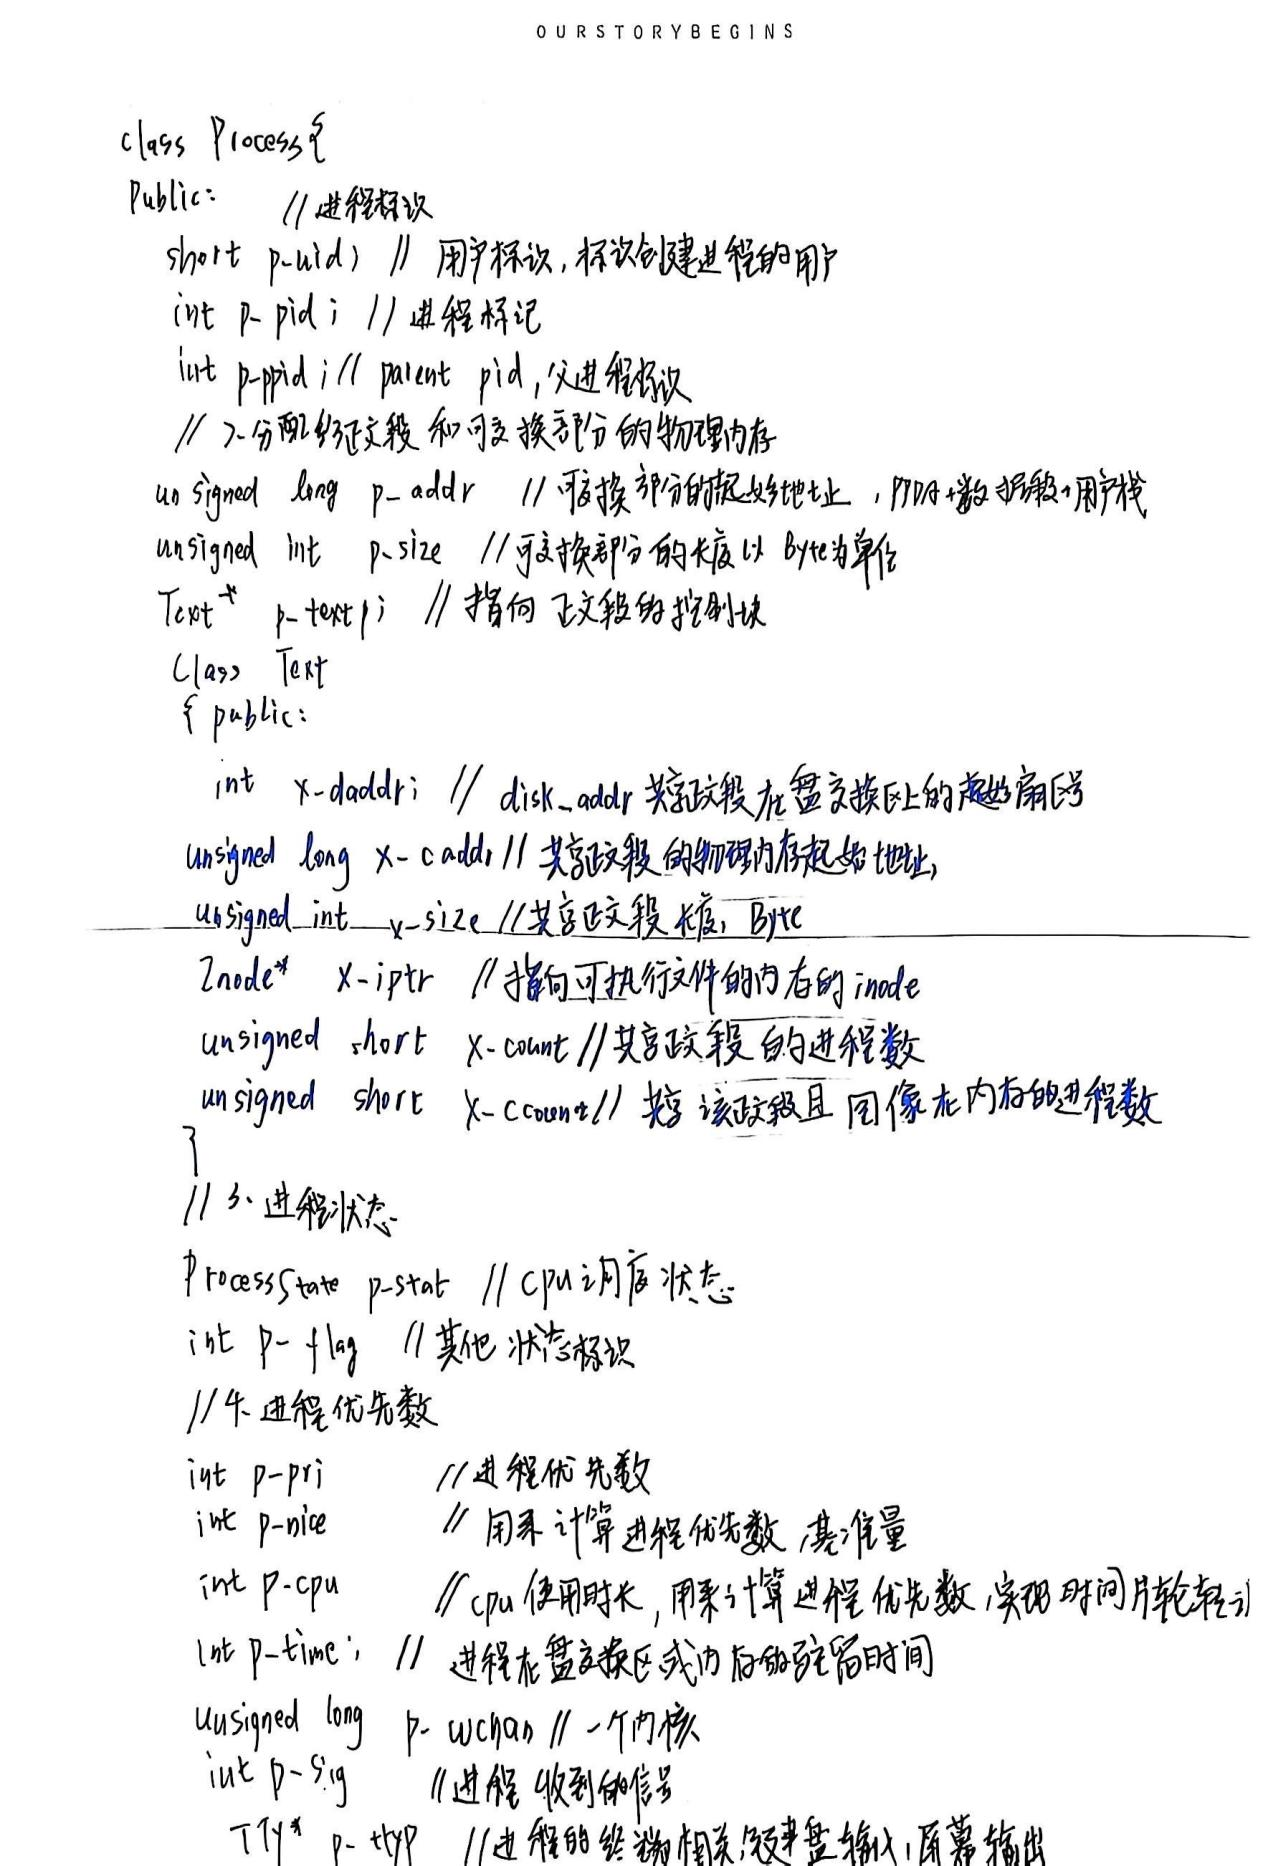 OURSTORYBEGINS
class Process{
Public: //进程标识
short p_uid; // 用户标识,标识创建进程的用户
int p_pid; //进程标记
int p_ppid; // parent pid,父进程标识
// 2.分配给正文段和可交换部分的物理内存
unsigned long p_addr //可交换部分的起始地址,PPDA+数据段+用户栈
unsigned int p_size //可交换部分的长度以Byte为单位
Text* p_textp; //指向正文段的控制块
Class Text
{ public:
int x_daddr; // disk_addr共享正文段在盘交换区上的起始扇区号
unsigned long x_caddr //共享正文段的物理内存起始地址,
unsigned int x_size //共享正文段长度,Byte
Inode* x_iptr //指向可执行文件的内存的inode
unsigned short x_count //共享正文段的进程数
unsigned short x_ccount // 共享该正文段且图像在内存的进程数
}
// 3、进程状态
ProcessState p_stat //cpu调度状态
int p_flag //其他状态标识
//4.进程优先数
int p_pri //进程优先数
int p_nice // 用来计算进程优先数,基准量
int p_cpu //cpu使用时长,用来计算进程优先数,实现时间片轮转
int p_time; // 进程在盘交换区或内存的驻留时间
unsigned long p_wchan // 一个内核
int p_sig //进程收到的信号
TTy* p_ttyp //进程的终端相关,键盘输入,屏幕输出